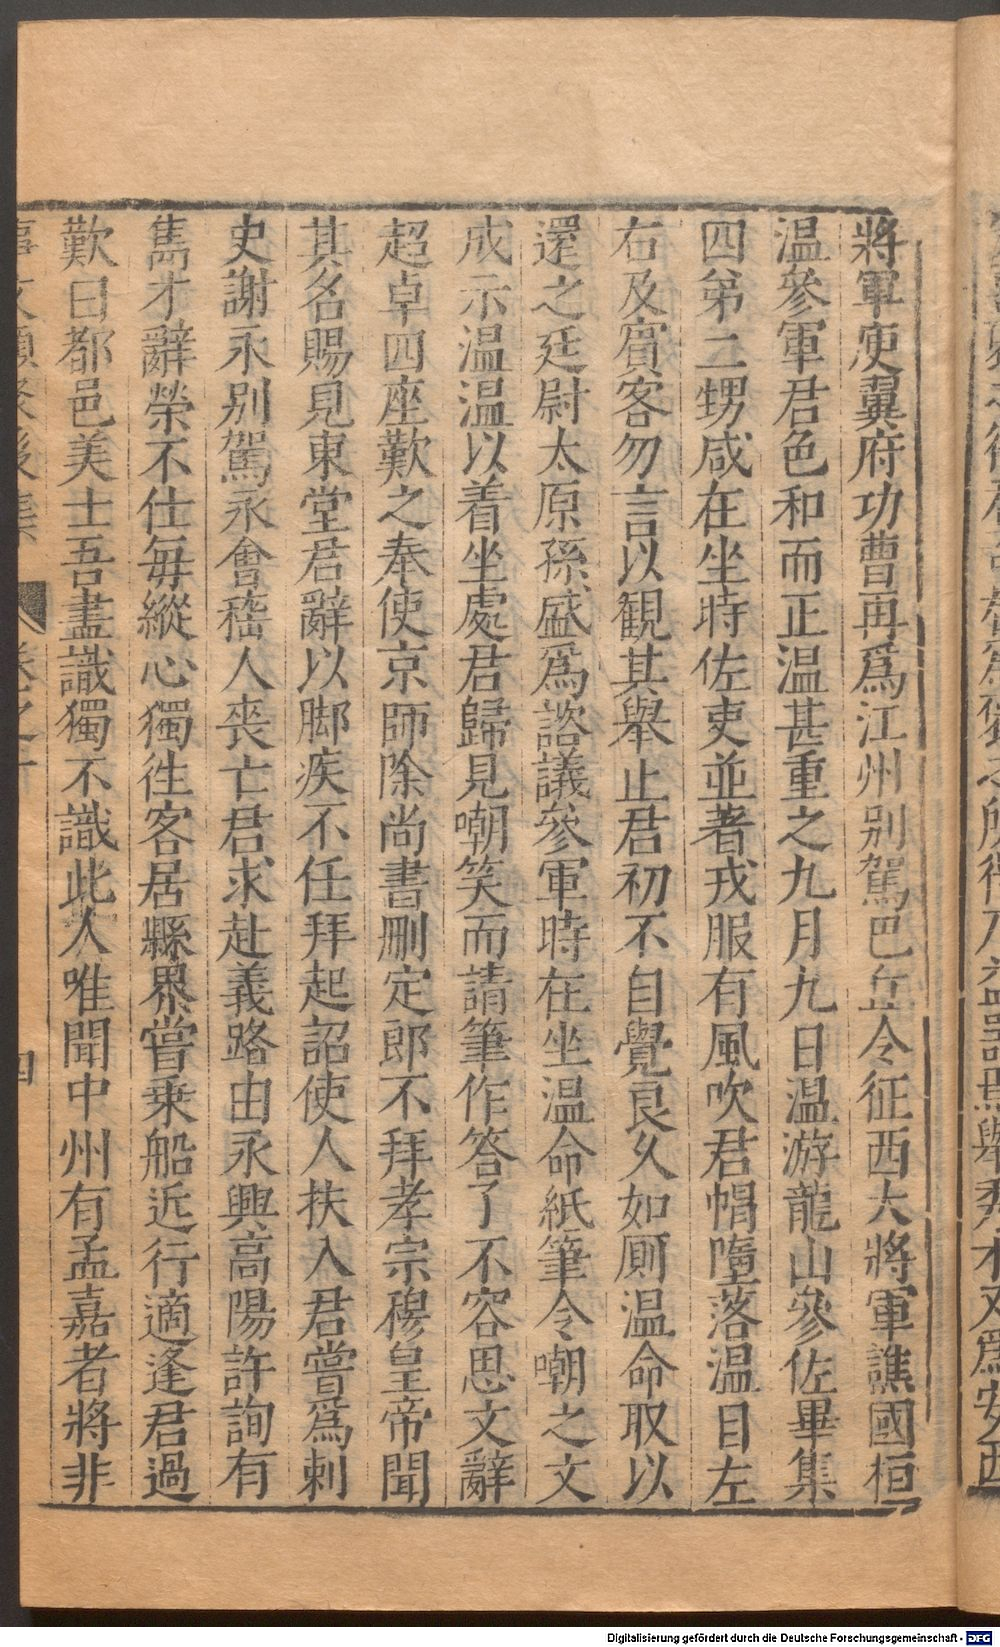 將軍庾翼府功曹再爲江州别駕巴丘令征西大將軍譙國桓
温參軍君色和而正温甚重之九月九日温游龍山參佐畢集
四弟二甥咸在坐時佐吏並著戎服有風吹君帽墮落温目左
右及賓客勿言以觀其舉止君初不自覺良久如厠温命取以
還之廷尉太原孫盛爲諮議參軍時在坐温命紙筆令嘲之文
成示温温以着坐處君歸見嘲笑而請筆作答了不容思文辭
超卓四座歎之奉使京師除尚書删定郎不拜孝宗穆皇帝聞
其名賜見東堂君辭以脚疾不任拜起詔使人扶入君嘗爲刺
史謝永别駕永會嵇人喪亡君求赴義路由永興高陽許詢有
雋才辭榮不仕每縱心獨徃客居縣界嘗乗船近行適逢君過
歎曰都邑美士吾盡識獨不識此人唯聞中州有孟嘉者將非
Digitalisierung gefördert durch die Deutsche Forschungsgemeinschaft - DFG